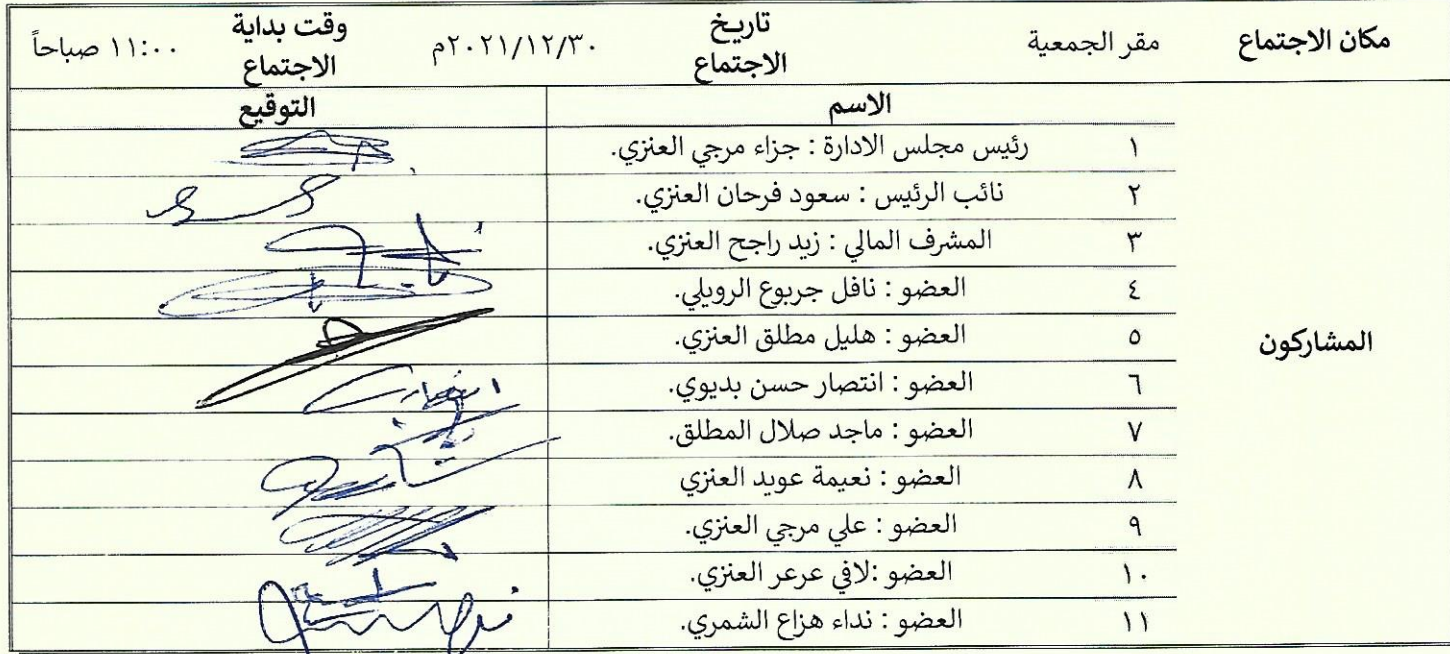 مكان الاجتماع مقر الجمعية تاريخ الاجتماع ٢٠٢١/١٢/٣٠م وقت بداية الاجتماع ١١:٠٠ صباحاً
المشاركون
الاسم التوقيع
١ رئيس مجلس الادارة : جزاء مرجي العنزي.
٢ نائب الرئيس : سعود فرحان العنزي.
٣ المشرف المالي : زيد راجح العنزي.
٤ العضو : نافل جربوع الرويلي.
٥ العضو : هليل مطلق العنزي.
٦ العضو : انتصار حسن بديوي.
٧ العضو : ماجد صلال المطلق.
٨ العضو : نعيمة عويد العنزي
٩ العضو : علي مرجي العنزي.
١٠ العضو :لافي عرعر العنزي.
١١ العضو : نداء هزاع الشمري.